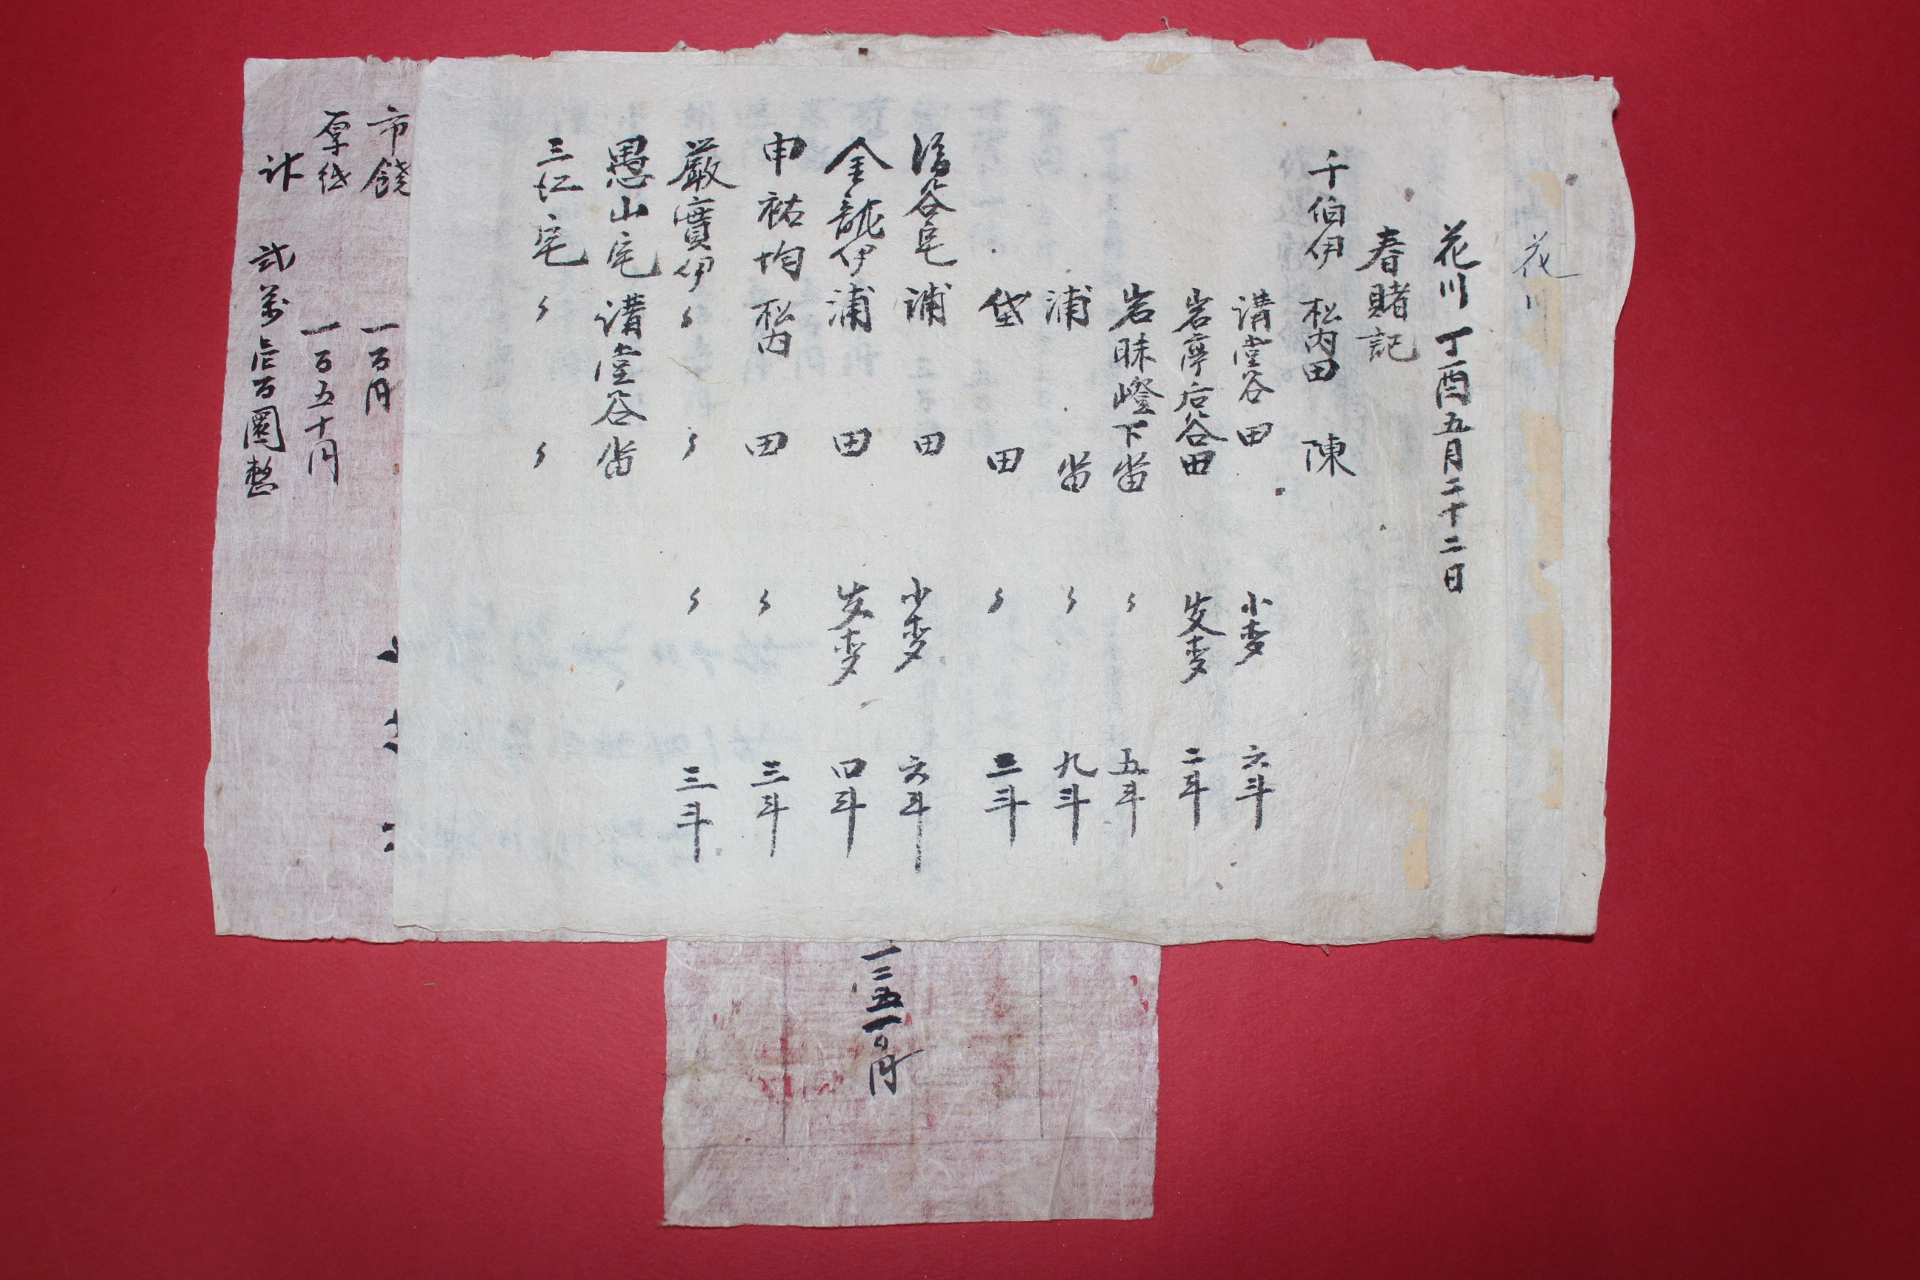 花川
花川 丁酉五月二十二日
春賭記
千伯伊 松内田 陳
講堂谷田 小麥 六斗
岩亭后谷田 安麥 二斗
岩昧嶝下畓 〃 五斗
浦 畓 〃 九斗
垈 田 〃 三斗
谷宅 浦 田 小麥 六斗
金龍伊 浦 田 安麥 四斗
申祐均 松内 田 〃 三斗
嚴實伊 〃 〃 〃 三斗
愚山宅 講堂谷畓
三仁宅 〃 〃
市饒 一百円
厚紙 一百五十円
計 弐萬 百圜整
一二五一〇円